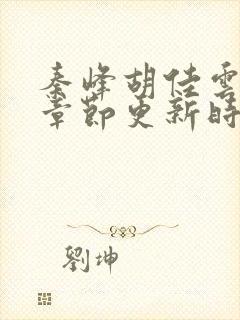 秦峰胡佳雲
章節更新時
劉坤